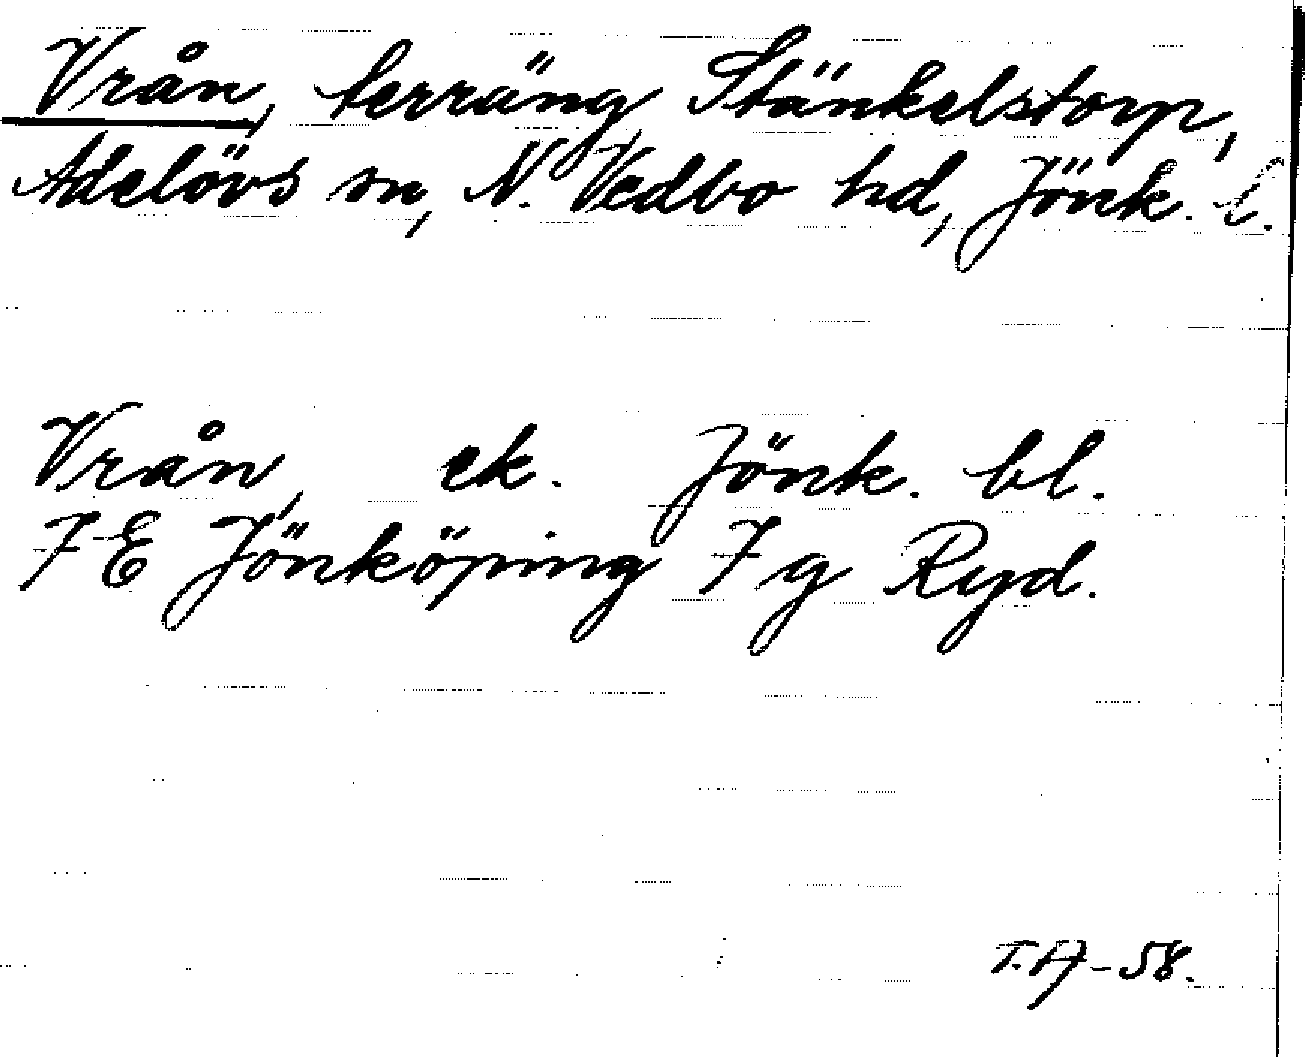 Vrån, terräng Stänkelstorp,
Adelövs sn, N. Vedbo hd, Jönk. l.
Vrån, ek. Jönk. bl.
7 E Jönköping 7 g Ryd.
T.A-58.